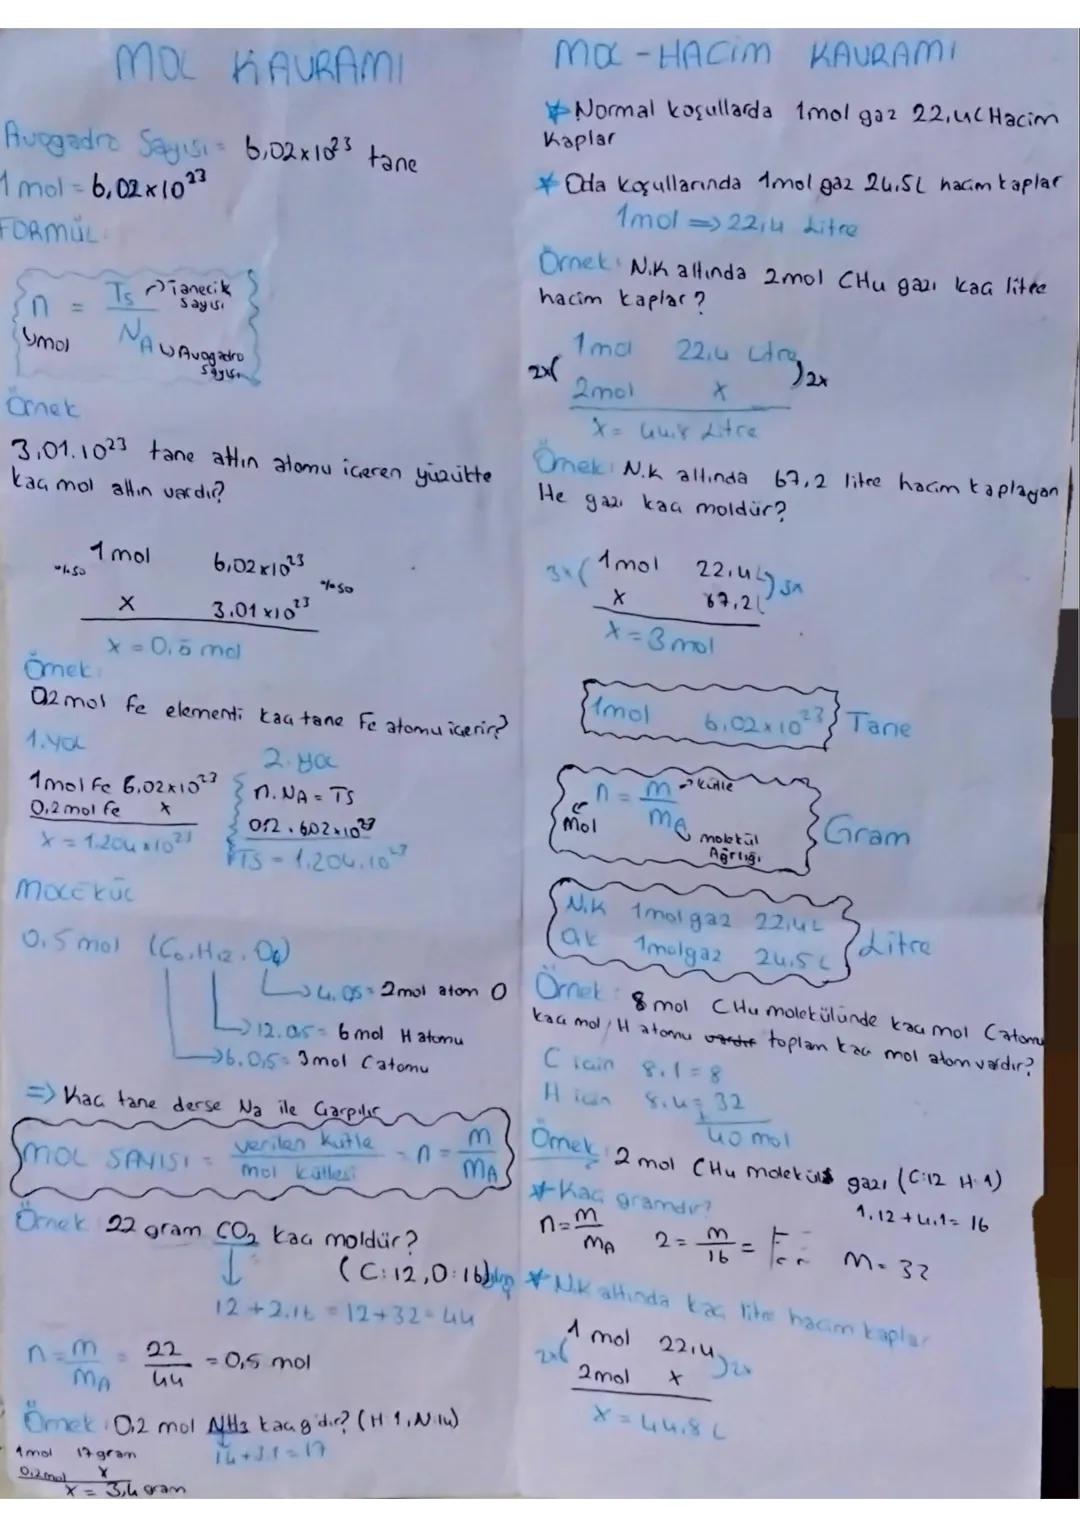 MOL KAVRAMI
Avogadro Sayısı = 6,02x10²³ tane
1 mol = 6,02x10²³
FORMÜL
n = Ts / NA
Tanecik Sayısı
mol
Avogadro Sayısı
Örnek
3,01.10²³ tane altın atomu içeren yüzükte
kaç mol altın vardır?
1 mol 6,02x10²³
%50 %50
x 3.01x10²³
x = 0,5 mol
Örnek:
0,2 mol Fe elementi kaç tane Fe atomu içerir?
1.yol
1mol Fe 6,02x10²³
0,2mol Fe x
x = 1.204x10²³
2.yol
n.NA = TS
0,2.602x10²³
TS = 1,204.10²³
MOLEKÜL
0.5 mol (C6,H12,O4)
4.05 = 2mol atom O
12.0,5 = 6 mol H atomu
6.0,5 = 3mol C atomu
=> Kaç tane derse Na ile Çarpılır
MOL SAYISI = verilen kütle / mol kütlesi = n = m / MA
Örnek: 22 gram CO₂ kaç moldür?
(C:12,O:16)
12+2.16 = 12+32=44
n = m / MA = 22 / 44 = 0,5 mol
Örnek: 0.2 mol NH3 kaç g'dır? (H:1,N:14)
14+3.1=17
1mol 17 gram
0,2mol x
x = 3,4 gram
MOL-HACİM KAVRAMI
* Normal koşullarda 1mol gaz 22,4L Hacim
Kaplar
* Oda koşullarında 1mol gaz 24.5L hacim kaplar
1mol => 22,4 Litre
Örnek: N.K altında 2mol CH4 gazı kaç litre
hacim kaplar?
1mol 22,4 Litre
2x( )2x
2mol x
x = 44.8 Litre
Örnek: N.K altında 67,2 litre hacim kaplayan
He gazı kaç moldür?
1mol 22,4L
3x( )3x
x 67,2L
x = 3 mol
1mol 6,02x10²³ Tane
n = m / MA
kütle
Mol
molekül Ağırlığı
Gram
N.K 1mol gaz 22,4L
O.K 1mol gaz 24.5L
Litre
Örnek: 8 mol CH4 molekülünde kaç mol C atomu
kaç mol H atomu vardır toplam kaç mol atom vardır?
C için 8.1=8
H için 8.4=32
40 mol
Örnek: 2 mol CH4 molekülü gazı (C:12 H:1)
* Kaç gramdır?
1.12+4.1=16
n = m / MA 2 = m / 16 = M = 32
* N.K altında kaç litre hacim kaplar
1 mol 22,4
2x( )2x
2mol x
x = 44.8 L